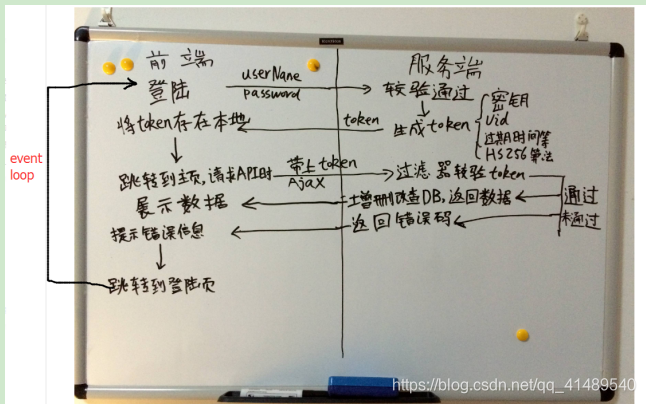 前端
服务端
登陆
userName
password
较验通过
将token存在本地
token
生成token
密钥
uid
过期时间等
HS256算法
跳转到主页,请求API时
带上token
Ajax
过滤器较验token
展示数据
增删改查DB,返回数据
通过
提示错误信息
返回错误码
未通过
跳转到登陆页
event
loop
https://blog.csdn.net/qq_41489540